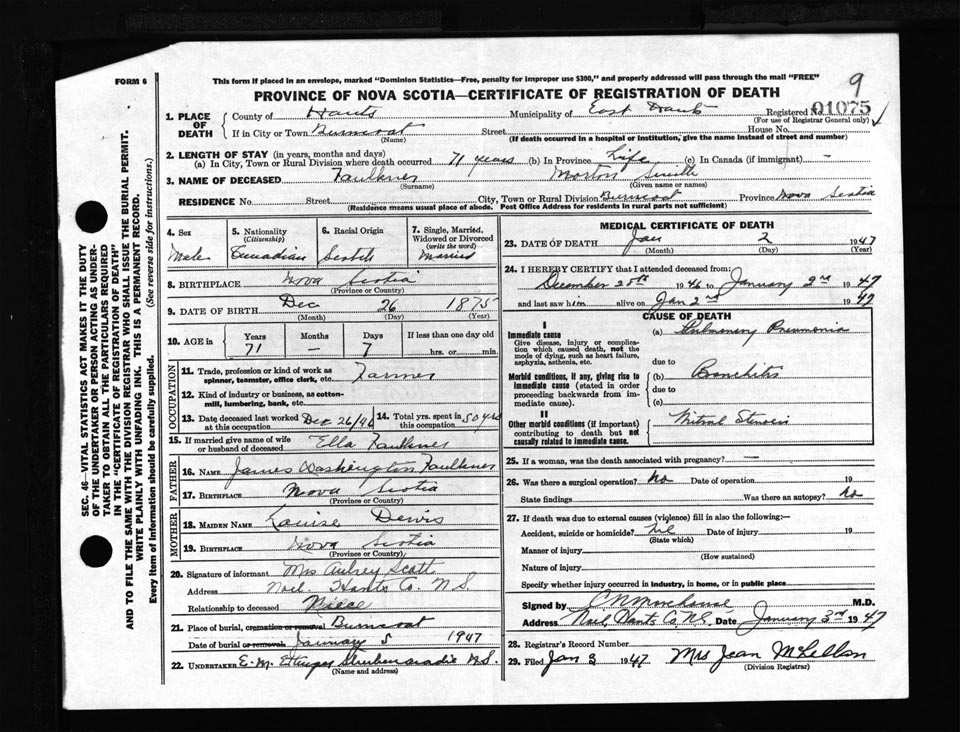 FORM 6
This form if placed in an envelope, marked "Dominion Statistics—Free, penalty for improper use $300," and properly addressed will pass through the mail "FREE"
9
PROVINCE OF NOVA SCOTIA—CERTIFICATE OF REGISTRATION OF DEATH
1. PLACE OF DEATH { County of Hants Municipality of East Hants Registered No. 01075
(For use of Registrar General only)
If in City or Town Burncoat Street House No.
(Name) (If death occurred in a hospital or institution, give the name instead of street and number)
2. LENGTH OF STAY (in years, months and days)
(a) In City, Town or Rural Division where death occurred 71 years (b) In Province Life (c) In Canada (if immigrant) —
3. NAME OF DECEASED Faulkner Morton Smith
(Surname) (Given name or names)
RESIDENCE No. Street City, Town or Rural Division Burncoat Province Nova Scotia
(Residence means usual place of abode. Post Office Address for residents in rural parts not sufficient)
4. Sex Male
5. Nationality (Citizenship) Canadian
6. Racial Origin Scotch
7. Single, Married, Widowed or Divorced (write the word) Married
8. BIRTHPLACE Nova Scotia
(Province or Country)
9. DATE OF BIRTH Dec 26 1875
(Month) (Day) (Year)
10. AGE in Years Months Days If less than one day old
71 — 7 hrs. or min.
OCCUPATION
11. Trade, profession or kind of work as spinner, teamster, office clerk, etc. Farmer
12. Kind of industry or business, as cotton-mill, lumbering, bank, etc.
13. Date deceased last worked at this occupation Dec 26/46
14. Total yrs. spent in this occupation 50 yrs
15. If married give name of wife or husband of deceased Ella Faulkner
FATHER
16. NAME James Washington Faulkner
17. BIRTHPLACE Nova Scotia
(Province or Country)
MOTHER
18. MAIDEN NAME Louise Dewis
19. BIRTHPLACE Nova Scotia
(Province or Country)
20. Signature of informant Mrs Aubrey Scott
Address Noel Hants Co. N.S.
Relationship to deceased Niece
21. Place of burial, cremation or removal Burncoat
Date of burial or removal January 5 1947
22. UNDERTAKER E. M. Ettinger Shubenacadie N.S.
(Name and address)
MEDICAL CERTIFICATE OF DEATH
23. DATE OF DEATH Jan 2 1947
(Month) (Day)
24. I HEREBY CERTIFY that I attended deceased from:
December 28th 1946 to January 2nd 1947
and last saw him alive on Jan 2nd 1947
CAUSE OF DEATH
I
Immediate cause (a) Pulmonary Pneumonia
Give disease, injury or complication which caused death, not the mode of dying, such as heart failure, asphyxia, asthenia, etc.
due to
Morbid conditions, if any, giving rise to immediate cause (stated in order proceeding backwards from immediate cause).
(b) Bronchitis
due to
(c)
II
Other morbid conditions (if important) contributing to death but not causally related to immediate cause.
Mitral Stenosis
25. If a woman, was the death associated with pregnancy? —
26. Was there a surgical operation? No Date of operation 19
State findings Was there an autopsy? No
27. If death was due to external causes (violence) fill in also the following:—
Accident, suicide or homicide? Date of injury 19
(State which)
Manner of injury
(How sustained)
Nature of injury
Specify whether injury occurred in industry, in home, or in public place
Signed by M.D.
Address Noel, Hants Co. N.S. Date January 3rd 1947
28. Registrar's Record Number
29. Filed Jan 3 1947 Mrs Jean McLellan
(Division Registrar)
SEC. 46—VITAL STATISTICS ACT MAKES IT THE DUTY
OF THE UNDERTAKER OR PERSON ACTING AS UNDER-
TAKER TO OBTAIN ALL THE PARTICULARS REQUIRED
IN THE "CERTIFICATE OF REGISTRATION OF DEATH"
AND TO FILE THE SAME WITH THE DIVISION REGISTRAR WHO SHALL ISSUE THE BURIAL PERMIT.
WRITE PLAINLY WITH UNFADING INK. THIS IS A PERMANENT RECORD.
Every item of information should be carefully supplied. (See reverse side for instructions.)